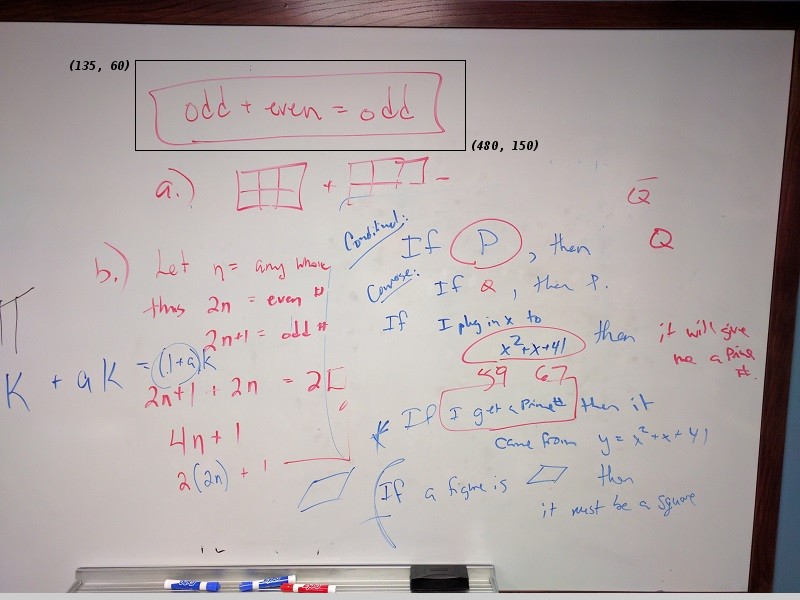 (135, 60)
odd + even = odd
(480, 150)
a.) + -
Q
Conditional:
If P, then Q
b.) Let n = any whole
Converse:
If Q, then P.
thus 2n = even #
2n+1 = odd #
If I plug in x to
x²+x+41 then it will give
me a Prime
#.
K + aK = (1+a)K
59 67
2n+1 + 2n = 2[
* If I get a Prime # then it
came from y = x²+x+41
4n+1
2(2n) + 1
If a figure is then
it must be a square